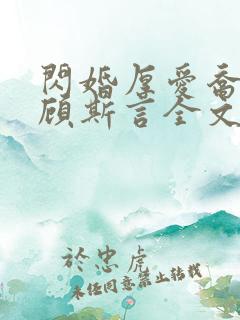 閃婚厚愛喬
顧斯言全文
於忠虎
未经同意禁止转载